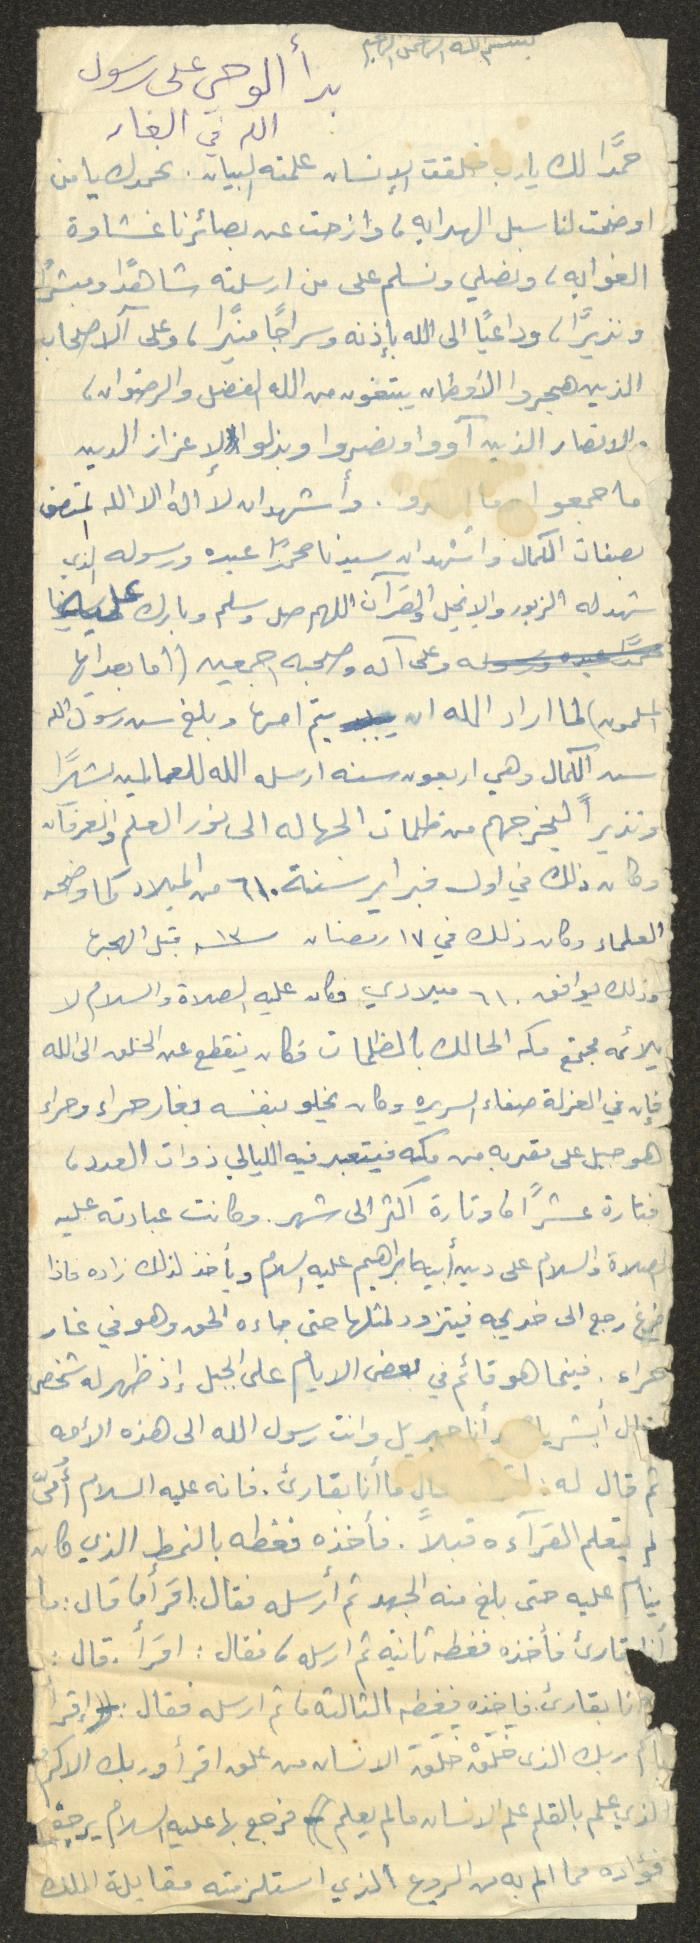 بسم الله الرحمن الرحيم
بدأ الوحي على رسول
الله في الغار
حمدًا لك يا رب خلقت الإنسان علمته البيان . نحمدك يا من
اوضحت لنا سبل الهدايه ، وازحت عن بصائرنا غشاوة
الغوايه ، ونصلي ونسلم على من ارسلته شاهدًا ومبشرًا
ونذيرًا ، وداعيًا الى الله بإذنه وسراجًا منيرًا ، وعلى آل الاصحاب
الذين هجروا الأوطان يبتغون من الله الفضل والرضوان ،
والانصار الذين آووا ونصروا وبذلوا لإعزاز الدين
ما جمعوا وما . وأشهد ان لا اله الا الله المتصف
بصفات الكمال واشهد ان سيدنا محمدًا عبده ورسوله الذي
شهد له الزبور والانجيل والقرآن اللهم صل وسلم وبارك على سيدنا
محمدًا عبده ورسوله وعلى آله وصحبه اجمعين (اما بعد ايها
المسلمون) لما اراد الله ان يتم امرها وبلغ سن رسول الله
سن الكمال وهي اربعون سنه ارسله الله للعالمين بشيرًا
ونذيرًا ليخرجهم من ظلمات الجهاله الى نور العلم والعرفان
وكان ذلك في اول فبراير سنة ٦١٠ من الميلاد كما وضحه
العلماء وكان ذلك في ١٧ رمضان سنة ١٣ قبل الهجره
وذلك يوافق ٦١٠ ميلادي وكان عليه الصلاة والسلام لا
يلائمه مجتمع مكه الحالك بالمظلمات فكان ينقطع عن الخلق الى الله
فإن في العزلة صفاء السريره وكان يخلو بنفسه بغار حراء وحراء
هو جبل على مقربه من مكه فيتعبد فيه الليالي ذوات العدد ،
فتارة عشرًا ، وتارة اكثر الى شهر . وكانت عبادته عليه
الصلاة والسلام على دين أبيه ابراهيم عليه السلام ويأخذ لذلك زاده فاذا
فرغ رجع الى خديجه فيتزود لمثلها حتى جاءه الحق وهو في غار
حراء . فبينما هو قائم في بعض الايام على الجبل إذ ظهر له شخص
فقال أبشر يا محمد أنا جبريل وانت رسول الله الى هذه الأمه
ثم قال له : قال ما أنا بقارئ . فانه عليه السلام أُمّيّ
لم يتعلم القرآءه قبلاً . فأخذه فغطه بالنمط الذي كان
ينام عليه حتى بلغ منه الجهد ثم أرسله فقال : اقرأ ، قال : ما
أنا بقارئ فأخذه فغطه ثانية ثم ارسله ، فقال : اقرأ . قال :
ما أنا بقارئ . فاخذه فغطه الثالثه ، ثم ارسله فقال : إقرأ
باسم ربك الذي خلق خلق الانسان من علق اقرأ وربك الاكرم
الذي علم بالقلم علم الانسان مالم يعلم) فرجع بها عليه السلام يرجف
فؤاده مما الم به من الروع الذي استلزمته مقابلة الملك